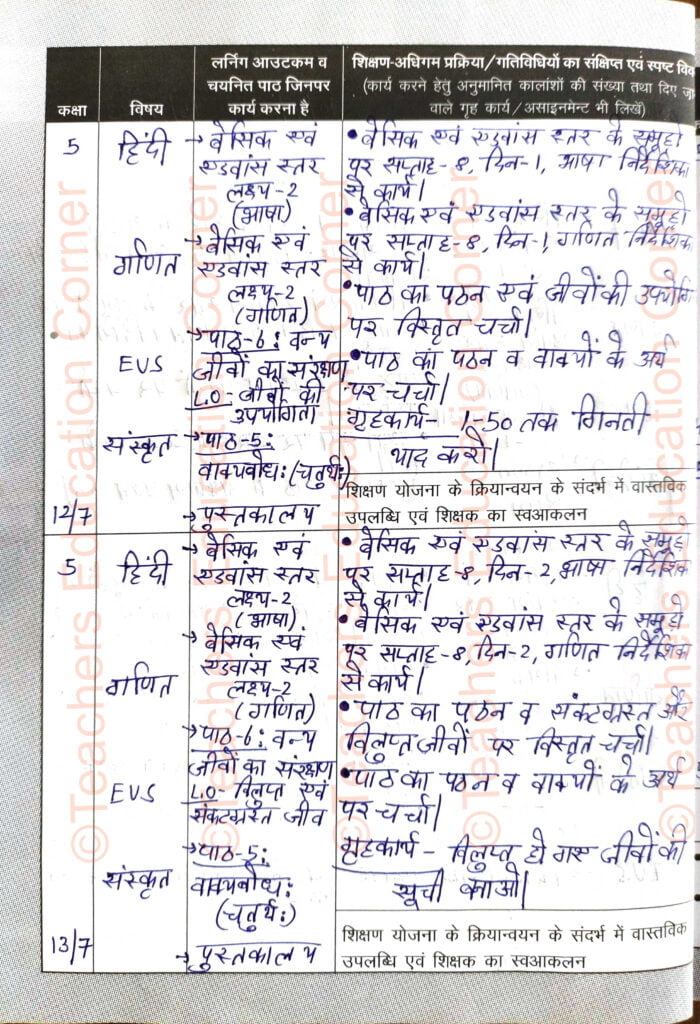 कक्षा
विषय
लर्निंग आउटकम व
चयनित पाठ जिनपर
कार्य करना है
शिक्षण-अधिगम प्रक्रिया/गतिविधियों का संक्षिप्त एवं स्पष्ट विव
(कार्य करने हेतु अनुमानित कालांशों की संख्या तथा दिए जा
वाले गृह कार्य/असाइनमेंट भी लिखें)
5
हिंदी
→ बेसिक एवं
एडवांस स्तर
लक्ष्य-2
(भाषा)
• बेसिक एवं एडवांस स्तर के समूहो
पर सप्ताह-8, दिन-1, भाषा निर्देशिका
से कार्य।
गणित
→ बेसिक एवं
एडवांस स्तर
लक्ष्य-2
(गणित)
• बेसिक एवं एडवांस स्तर के समूहो
पर सप्ताह-8, दिन-1, गणित निर्देशिक
से कार्य।
EVS
→ पाठ-6: वन्य
जीवों का संरक्षण
L.O- जीवों की
उपयोगिता
• पाठ का पठन एवं जीवों की उपयोगि
पर विस्तृत चर्चा।
संस्कृत
→ पाठ-5:
वाक्यबोध: (चतुर्थ:)
• पाठ का पठन व वाक्यों के अर्थ
पर चर्चा।
गृहकार्य- 1-50 तक गिनती
याद करो।
12/7
→ पुस्तकालय
शिक्षण योजना के क्रियान्वयन के संदर्भ में वास्तविक
उपलब्धि एवं शिक्षक का स्वआकलन
5
हिंदी
→ बेसिक एवं
एडवांस स्तर
लक्ष्य-2
(भाषा)
• बेसिक एवं एडवांस स्तर के समूहो
पर सप्ताह-8, दिन-2, भाषा निर्देशिक
से कार्य।
गणित
→ बेसिक एवं
एडवांस स्तर
लक्ष्य-2
(गणित)
• बेसिक एवं एडवांस स्तर के समूहो
पर सप्ताह-8, दिन-2, गणित निर्देशिक
से कार्य।
EVS
→ पाठ-6: वन्य
जीवों का संरक्षण
L.O- विलुप्त एवं
संकटग्रस्त जीव
• पाठ का पठन व संकटग्रस्त और
विलुप्त जीवों पर विस्तृत चर्चा।
संस्कृत
→ पाठ-5:
वाक्यबोध:
(चतुर्थ:)
• पाठ का पठन व वाक्यों के अर्थ
पर चर्चा।
गृहकार्य - विलुप्त हो गए जीवों की
सूची बनाओ।
13/7
→ पुस्तकालय
शिक्षण योजना के क्रियान्वयन के संदर्भ में वास्तविक
उपलब्धि एवं शिक्षक का स्वआकलन
©Teachers Education Corner
©Teachers Education Corner
©Teachers Education Corner
©Teachers Education Corner